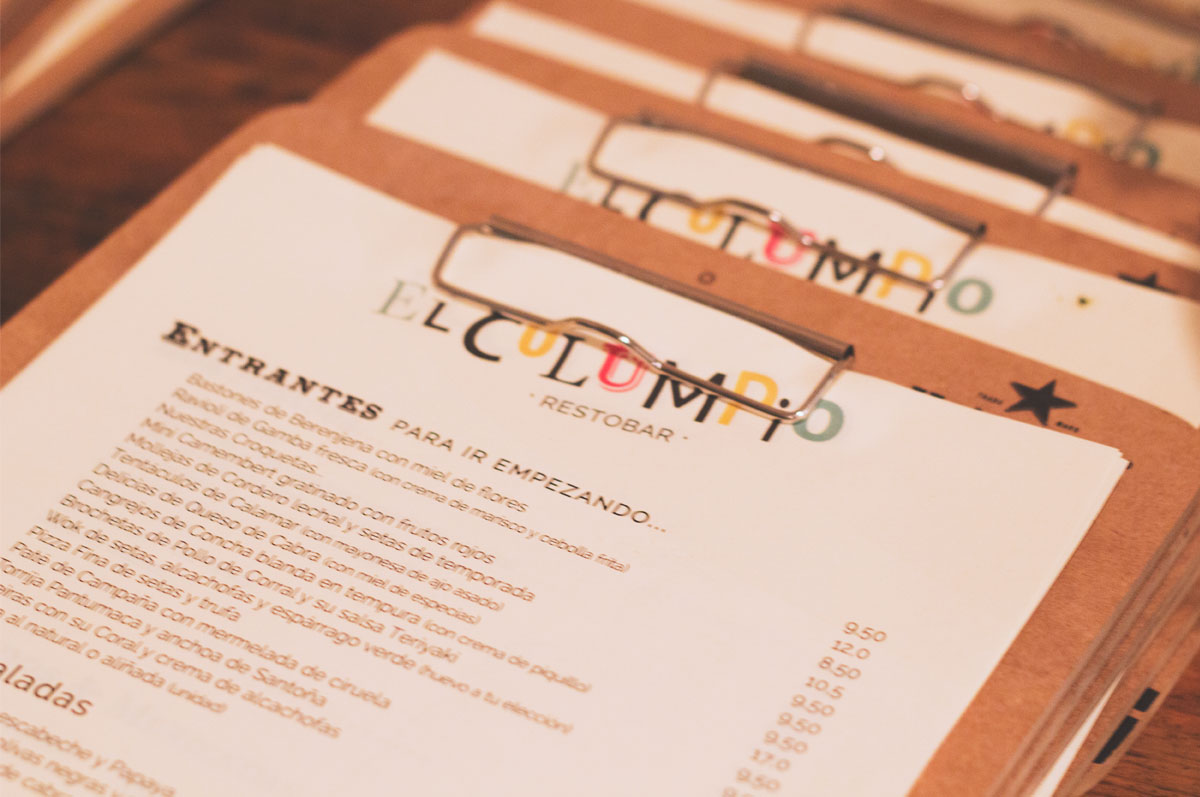 EL COLUMPiO
EL CULUMPiO
· RESTOBAR ·
TRADE
MARK
ENTRANTES PARA IR EMPEZANDO...
Bastones de Berenjena con miel de flores
Ravioli de Gamba fresca (con crema de marisco y cebolla frita)
Nuestras Croquetas.
Mini Camembert gratinado con frutos rojos
Mollejas de Cordero lechal y setas de temporada
Tentáculos de Calamar (con mayonesa de ajo asado)
Delicias de Queso de Cabra (con miel de especias)
Cangrejos de Concha blanda en tempura (con crema de piquillo)
Brochetas de Pollo de Corral y su salsa Teriyaki
Wok de setas, alcachofas y espárrago verde (huevo a tu elección)
Pizza Fina de setas y trufa
Paté de Campaña con mermelada de ciruela
Torrija Pantumaca y anchoa de Santoña
con su Coral y crema de alcachofas
al natural o aliñada (unidad)
9.50
12.0
8.50
10.5
9.50
9.50
9.50
17.0
9.50
aladas
escabeche y Papaya
negras y
de